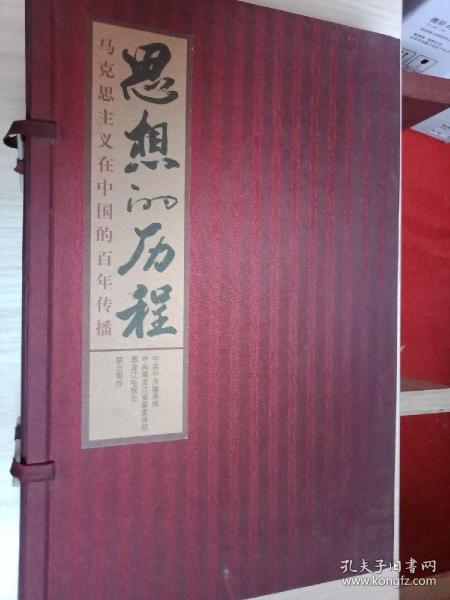 思想的历程
马克思主义在中国的百年传播
中共中央编译局
中共黑龙江省委宣传部
黑龙江电视台
联合制作
孔夫子旧书网
www.kongfz.com